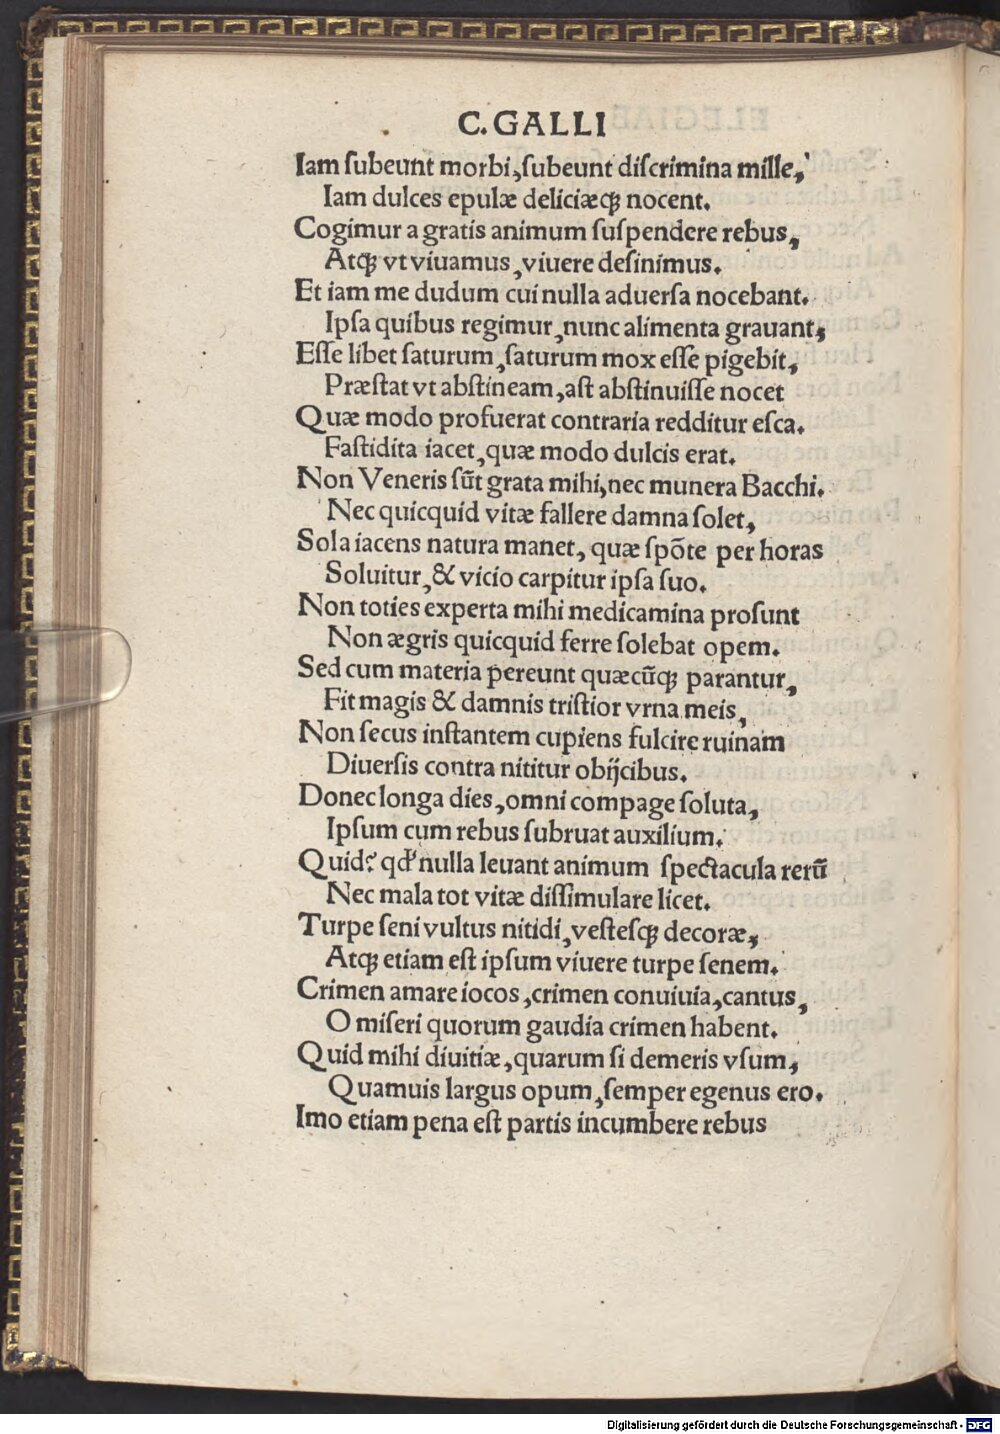 C. GALLI
Iam ſubeunt morbi, ſubeunt diſcrimina mille,
Iam dulces epulæ deliciæqꝫ nocent.
Cogimur a gratis animum ſuſpendere rebus,
Atqꝫ vt viuamus, viuere deſinimus.
Et iam me dudum cui nulla aduerſa nocebant.
Ipſa quibus regimur, nunc alimenta grauant,
Eſſe libet ſaturum, ſaturum mox eſſe pigebit,
Præſtat vt abſtineam, aſt abſtinuiſſe nocet
Quæ modo profuerat contraria redditur eſca.
Faſtidita iacet, quæ modo dulcis erat.
Non Veneris ſũt grata mihi, nec munera Bacchi.
Nec quicquid vitæ fallere damna ſolet,
Sola iacens natura manet, quæ ſpõte per horas
Soluitur, & vicio carpitur ipſa ſuo.
Non toties experta mihi medicamina proſunt
Non ægris quicquid ferre ſolebat opem.
Sed cum materia pereunt quæcũqꝫ parantur,
Fit magis & damnis triſtior vrna meis,
Non ſecus inſtantem cupiens fulcire ruinam
Diuerſis contra nititur obijcibus.
Donec longa dies, omni compage ſoluta,
Ipſum cum rebus ſubruat auxilium.
Quid? qđ nulla leuant animum ſpectacula rerũ
Nec mala tot vitæ diſſimulare licet.
Turpe ſeni vultus nitidi, veſteſqꝫ decoræ,
Atqꝫ etiam eſt ipſum viuere turpe ſenem.
Crimen amare iocos, crimen conuiuia, cantus,
O miſeri quorum gaudia crimen habent.
Quid mihi diuitiæ, quarum ſi demeris vſum,
Quamuis largus opum, ſemper egenus ero.
Imo etiam pena eſt partis incumbere rebus
Digitalisierung gefördert durch die Deutsche Forschungsgemeinschaft - DFG